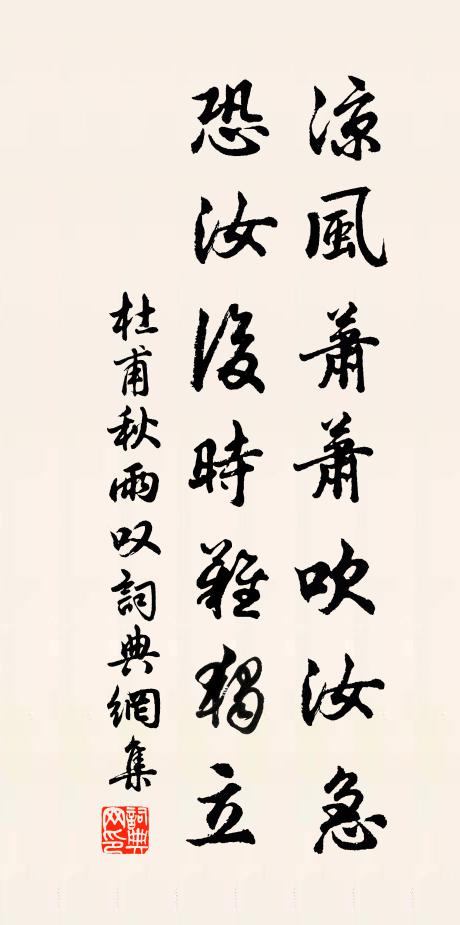 凉風蕭蕭吹汝急
恐汝後時難獨立
杜甫秋雨叹詞典網集
詞典網印